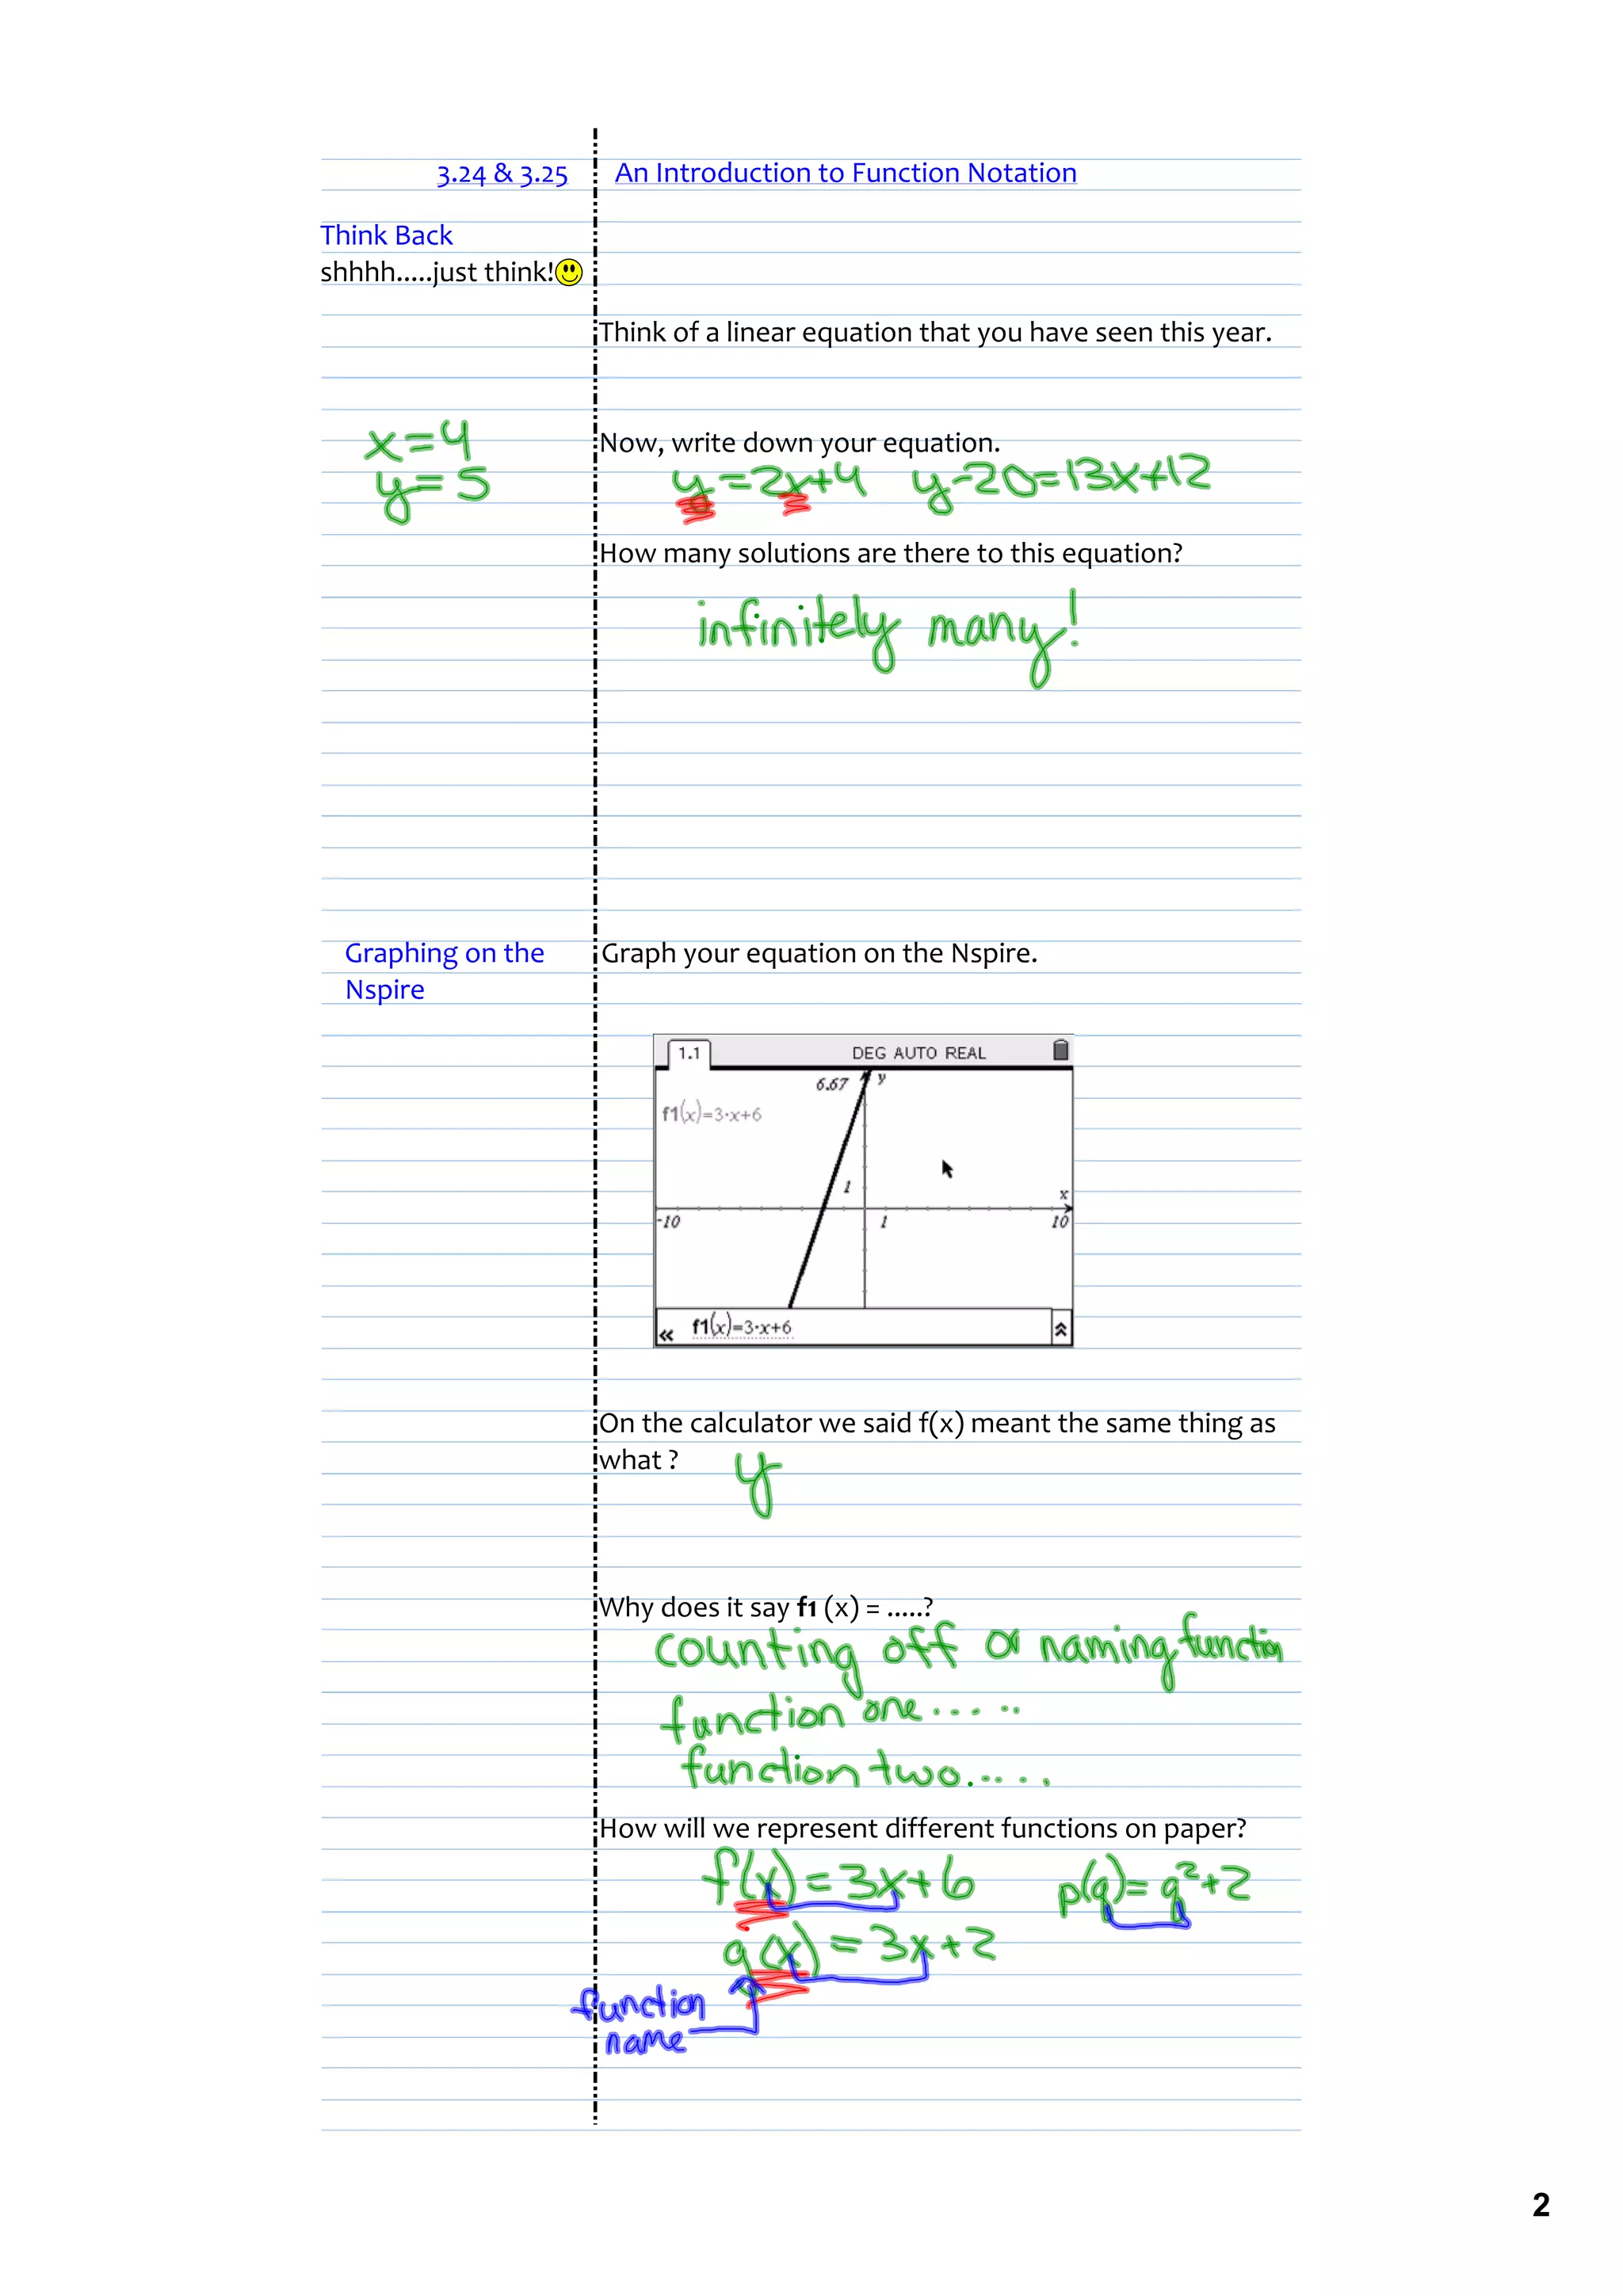 3.24 & 3.25 An Introduction to Function Notation
Think Back
shhhh.....just think!
Think of a linear equation that you have seen this year.
x=4
y=5
Now, write down your equation.
y=2x+4 y-20=13x+12
How many solutions are there to this equation?
infinitely many!
Graphing on the
Nspire
Graph your equation on the Nspire.
1.1 DEG AUTO REAL
6.67 y
f1(x)=3·x+6
1
x
-10 1 10
f1(x)=3·x+6
On the calculator we said f(x) meant the same thing as
what ? y
Why does it say f1 (x) = .....?
counting off or naming function
function one......
function two.....
How will we represent different functions on paper?
f(x)=3x+6 p(q)=q²+2
g(x)=3x+2
function
name
2